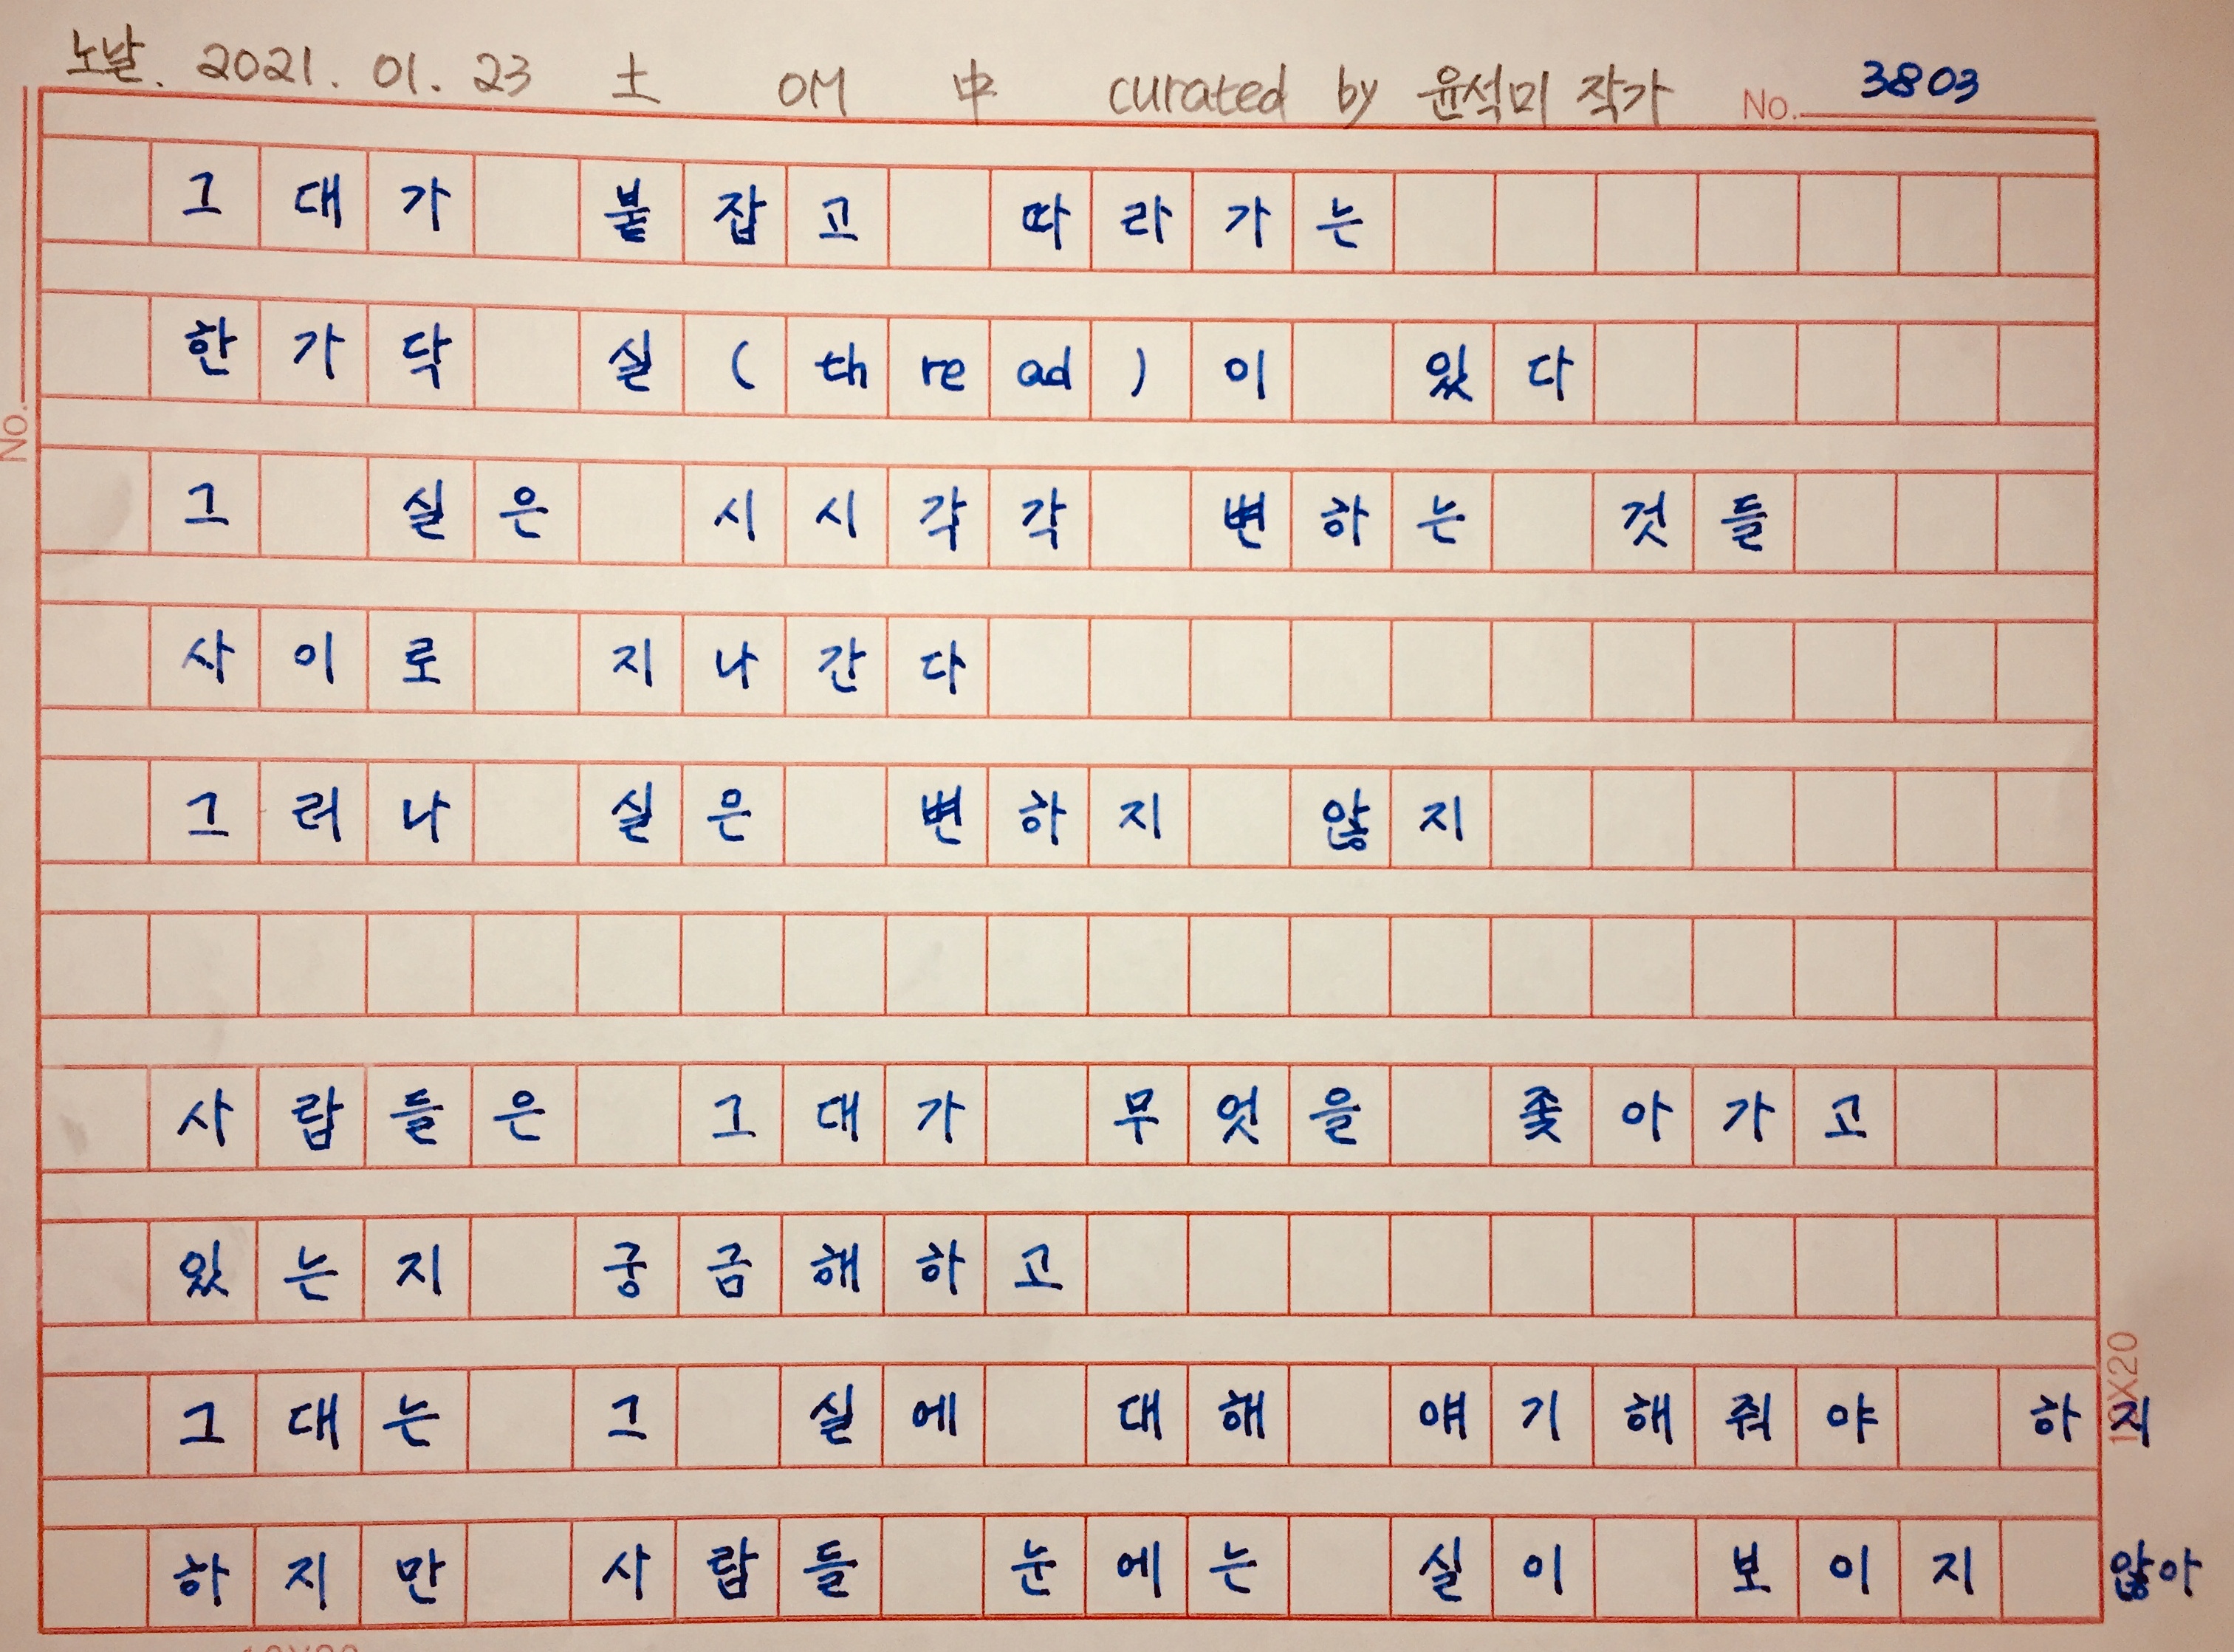 노날. 2021. 01. 23 土 OM 中 curated by 윤석미 작가 No. 3803
그대가 붙잡고 따라가는
한가닥 실(thread)이 있다
No.
그 실은 시시각각 변하는 것들
사이로 지나간다
그러나 실은 변하지 않지
사람들은 그대가 무엇을 좇아가고
있는지 궁금해하고
그대는 그 실에 대해 얘기해줘야 하지
10X20
하지만 사람들 눈에는 실이 보이지 않아